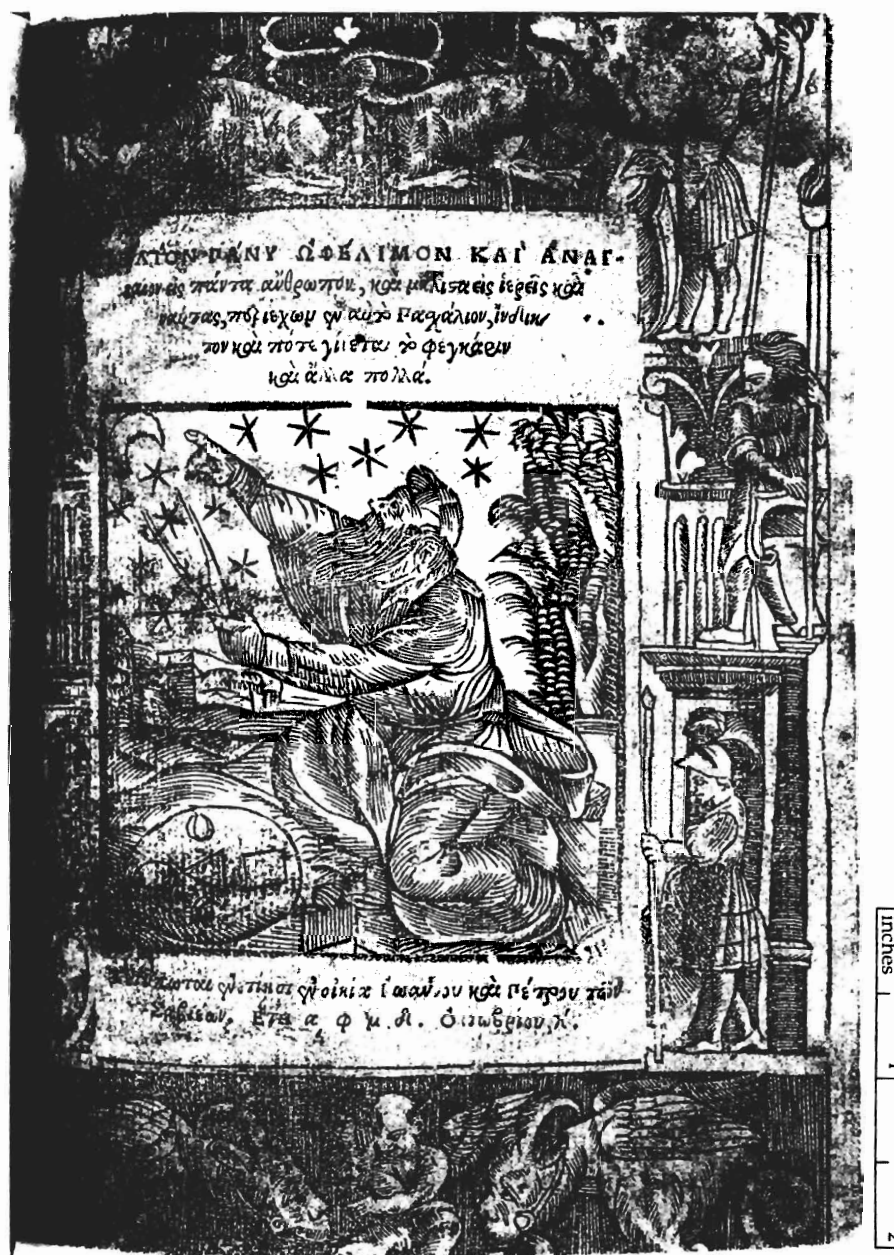 ΠΑΝΥ ΩΦΕΛΙΜΟΝ ΚΑΙ ΑΝΑΓ-
εἰς πάντα ἄνθρωπον, καὶ μάλιστα εἰς ἱερεῖς καὶ
ναύτας, περιέχων ἐν αὐτῷ Πασχάλιον, Ἰνδικ
τον καὶ ποτε γίνεται τὸ φεγκάριν
καὶ ἄλλα πολλά.
ἐνετίησι ἐν οἰκίᾳ Ἰωάννου καὶ Πέτρου τῶν
ΕΤΕΙ α φ μ
inches
1
2